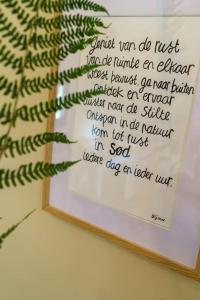 Geniet van de rust
van de ruimte en elkaar
Weest bewust, ga naar buiten
Ontdek en ervaar
Luister naar de Stilte
Ontspan in de natuur
kom tot rust
in Sød
iedere dag en ieder uur.